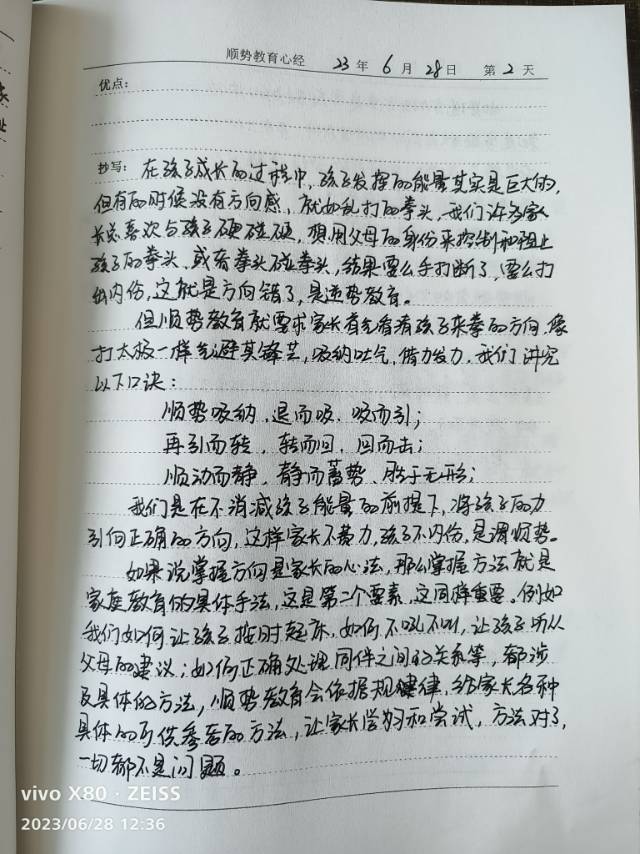 顺势教育心经 23 年 6 月 28 日 第 2 天
优点：
抄写：在孩子成长的过程中，孩子发挥的能量其实是巨大的，
但有的时候没有方向感，就如乱打的拳头，我们许多家
长总喜欢与孩子硬碰硬，想用父母的身份来控制和阻止
孩子的拳头，或者拳头碰拳头，结果要么手打断了，要么打
出内伤，这就是方向错了，是逆势教育。
但顺势教育就要求家长首先看清孩子来拳的方向，像
打太极一样先避其锋芒，吸纳吐气，借力发力，我们讲究
以下口诀：
顺势吸纳，退而吸，吸而引；
再引而转，转而回，回而击；
顺动而静，静而蓄势，胜于无形；
我们是在不消减孩子能量的前提下，将孩子的力
引向正确的方向，这样家长不费力，孩子不内伤，是谓顺势。
如果说掌握方向是家长的心法，那么掌握方法就是
家庭教育的具体手法，这是第二个要素，这同样重要。例如
我们如何让孩子按时起床，如何不吼不叫，让孩子听从
父母的建议；如何正确处理同伴之间的关系等，都涉
及具体的方法，顺势教育会依据规律，给家长各种
具体的可供参考的方法，让家长学习和尝试，方法对了，
一切都不是问题。
vivo X80 · ZEISS
2023/06/28 12:36